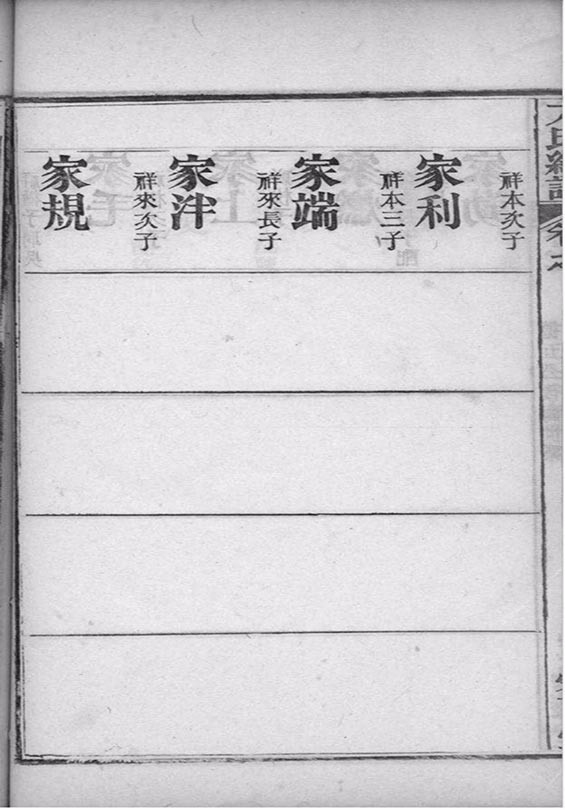 祥本次子
家利
祥本三子
家端
祥來長子
家泮
祥來次子
家規